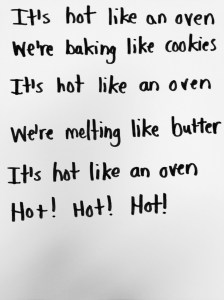 It's hot like an oven
We're baking like cookies
It's hot like an oven
We're melting like butter
It's hot like an oven
Hot! Hot! Hot!